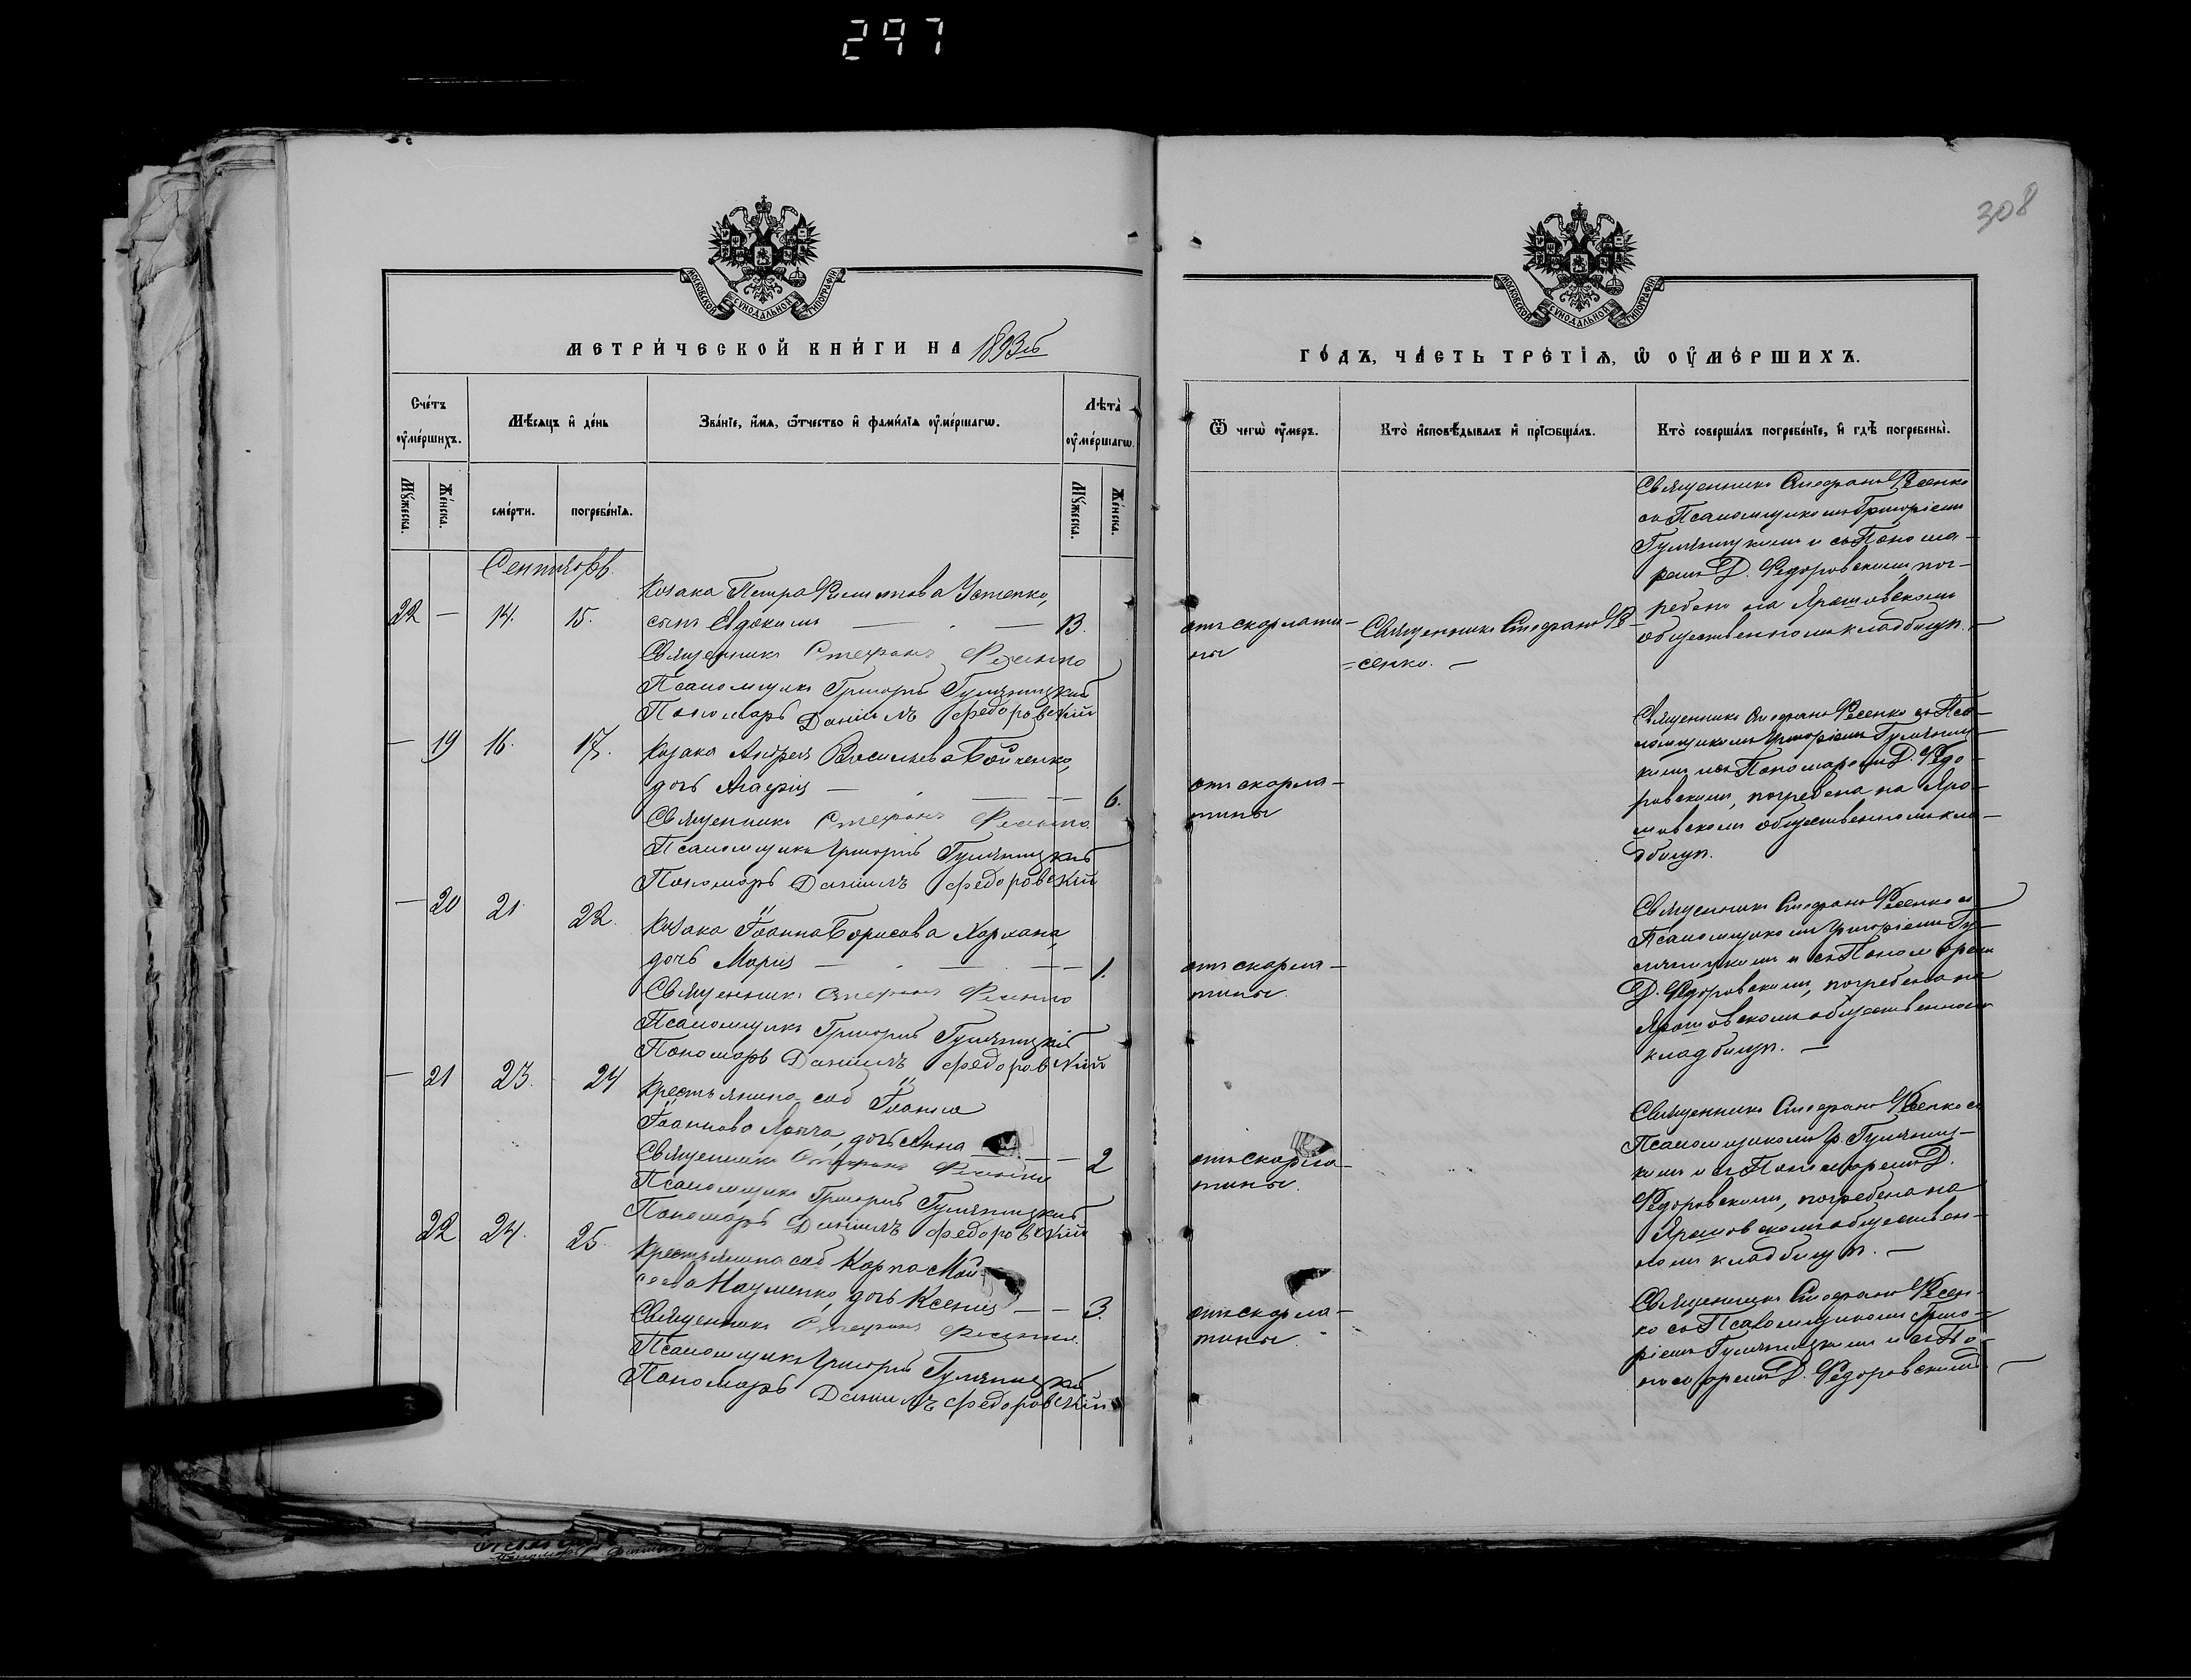 297
308
МОСКОВСКОЙ СѴНОДАЛЬНОЙ ТИПОГРАФІИ
МОСКОВСКОЙ СѴНОДАЛЬНОЙ ТИПОГРАФІИ
МЕТРИ́ЧЕСКОЙ КНИ́ГИ НА 1893й
ГО́ДЪ, ЧА́СТЬ ТРЕ́ТІѦ, Ѡ҆ ОУ҆МЕ́РШИХЪ.
Сче́тъ оу҆ме́ршихъ.
Мѣ́сяцъ и҆ де́нь
Зва́нїе, и҆́мѧ, ѻ҆́тчество и҆ фами́лїѧ оу҆ме́ршагѡ.
Лѣта̀ оу҆ме́ршагѡ.
Ѿ чегѡ̀ оу҆́меръ.
Кто̀ и҆сповѣ́дывалъ и҆ прїѻбща́лъ.
Кто̀ соверша́лъ погребе́нїе, и҆ гдѣ̀ погребены̀.
Мꙋ́жеска.
Же́нска.
сме́рти.
погребе́нїѧ.
Мꙋ́жеска.
Же́нска.
Сентябрь.
22 — 14. 15.
Козака Петра Филипова Устенко,
сынъ Евдокимъ — 13.
Священникъ Стефанъ Фесенко
Псаломщикъ Григорій Гумяницкій
Пономарь Даніилъ Федоровскій
отъ скарлати-
ны
Священникъ Стефанъ Фе-
=сенко. —
Священникъ Стефанъ Фесенко
съ Псаломщикомъ Григоріемъ
Гумяницкимъ и съ Понома-
ремъ Д. Федоровскимъ, пог-
ребенъ на Ярошовскомъ
общественномъ кладбищѣ. —
— 19 16. 17.
Козака Андрея Васильева Бойченко,
дочь Агафія — 6.
Священникъ Стефанъ Фесенко
Псаломщикъ Григорій Гумяницкій
Пономарь Даніилъ Федоровскій
отъ скарла-
тины
Священникъ Стефанъ Фесенко съ Пса-
ломщикомъ Григоріемъ Гумяниц-
кимъ и съ Пономаремъ Д. Федо-
ровскимъ, погребена на Яро-
шовскомъ общественномъ кла-
дбищѣ.
— 20 21. 22.
Козака Іоанна Борисова Харлана,
дочь Марія — 1.
Священникъ Стефанъ Фесенко
Псаломщикъ Григорій Гумяницкій
Пономарь Даніилъ Федоровскій
отъ скарла-
тины.
Священникъ Стефанъ Фесенко съ
Псаломщикомъ Григоріемъ Гу-
мяницкимъ и съ Пономаремъ
Д. Федоровскимъ, погребена на
Ярошовскомъ общественномъ
кладбищѣ. —
— 21 23. 24
Крестьянина соб Іоанна
Іоаннова дочь Анна — 2
Священникъ Стефанъ Фесенко
Псаломщикъ Григорій Гумяницкій
Пономарь Даніилъ Федоровскій
отъ скарла-
тины.
Священникъ Стефанъ Фесенко съ
Псаломщикомъ Гр. Гумяниц-
кимъ и съ Пономаремъ Д.
Федоровскимъ, погребена на
Ярошовскомъ обществен-
номъ кладбищѣ. —
22 24. 25.
Крестьянина соб Карпа Мои-
сеева Науменко, дочь Ксенія — 3.
Священникъ Стефанъ Фесенко
Псаломщикъ Григорій Гумяницкій
Пономарь Даніилъ Федоровскій
отъ скарла-
тины.
Священникъ Стефанъ Фесен-
ко съ Псаломщикомъ Григо-
ріемъ Гумяницкимъ и съ По-
номаремъ Д. Федоровскимъ